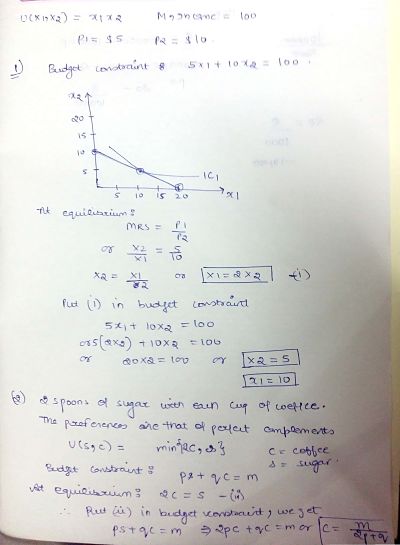 U(x1,x2) = x1x2 M, income = 100
P1 = $5 P2 = $10.
1) Budget constraint : 5x1 + 10x2 = 100.
x2
20
15
10
5
IC1
5 10 15 20 x1
At equilibrium:
MRS = P1/P2
or x2/x1 = 5/10
x2 = x1/2 or x1 = 2x2 -(i)
Put (i) in budget constraint
5x1 + 10x2 = 100
or 5(2x2) + 10x2 = 100
or 20x2 = 100 or x2 = 5
x1 = 10
(2) 2 spoons of sugar with each cup of coffee.
The preferences are that of perfect complements
U(s,c) = min{2c, s} c = coffee
s = sugar.
Budget constraint: ps + qc = m
At equilibrium: 2c = s -(ii)
∴ Put (ii) in budget constraint, we get
ps + qc = m ⇒ 2pc + qc = m or c = m/2p+q